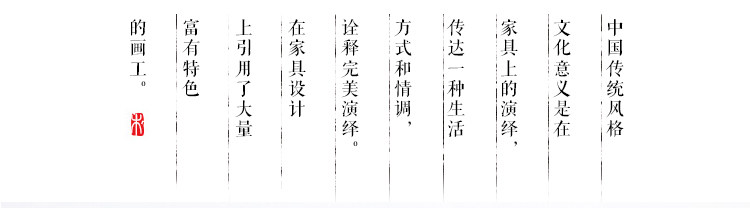 中国传统风格
文化意义是在
家具上的演绎，
传达一种生活
方式和情调，
诠释完美演绎。
在家具设计
上引用了大量
富有特色
的画工。